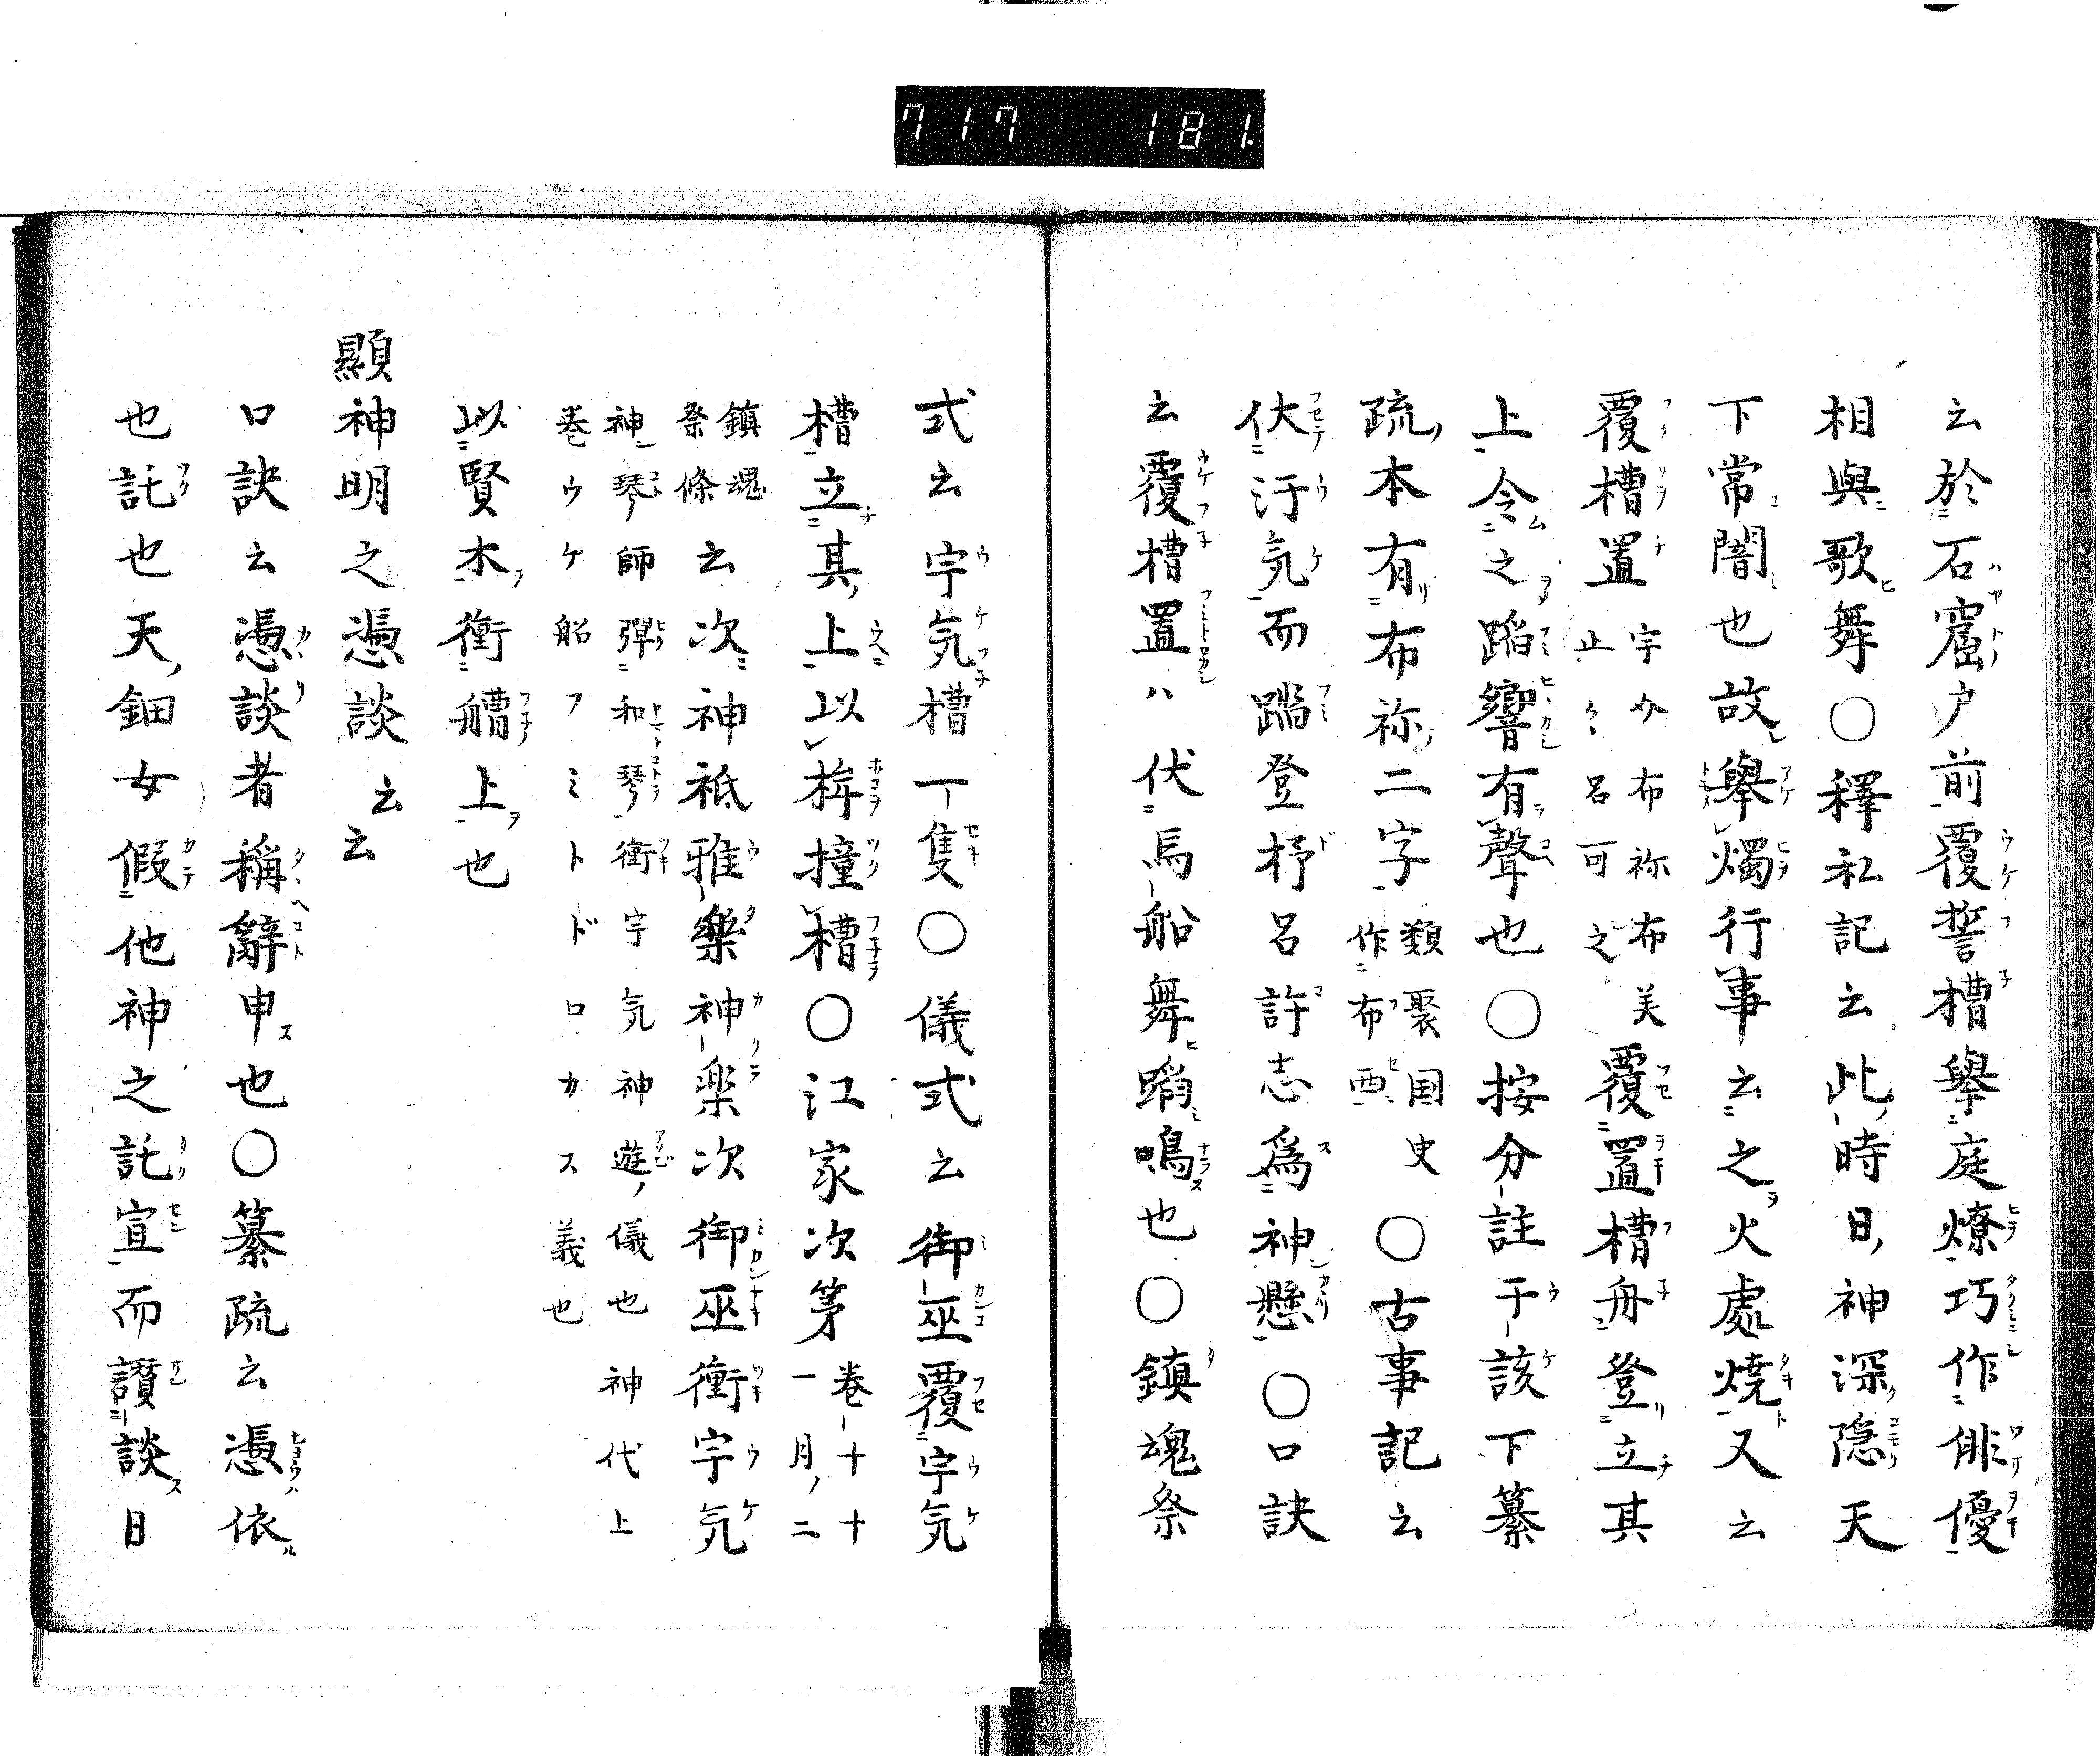 717 181.
云於石窟戸前覆誓槽擧庭燎巧作俳優
相與歌舞〇釋私記云此時日神深隠天
下常闇也故擧燭行事云之火處焼又云
覆槽置宇介布祢布美止々呂可之覆置槽舟登立其
上令之蹈響有聲也〇按分註于該下纂
疏本有布祢二字類聚国史作布西〇古事記云
伏汙気而蹈登杼呂許志為神懸〇口訣
云覆槽置ハ伏馬船舞蹈鳴也〇鎮魂祭
式云宇気槽一隻〇儀式云御巫覆宇気
槽立其上以桙撞槽〇江家次第巻十一十月二
鎮魂祭條云次神祗雅樂神楽次御巫衝宇気
神琴師彈和琴衝宇気神遊儀也神代上
巻ウケ船フミトドロカス義也
以賢木衝艚上也
顯神明之憑談云云
口訣云憑談者稱辭申也〇纂疏云憑依
也託也天鈿女假他神之託宣而讃談日